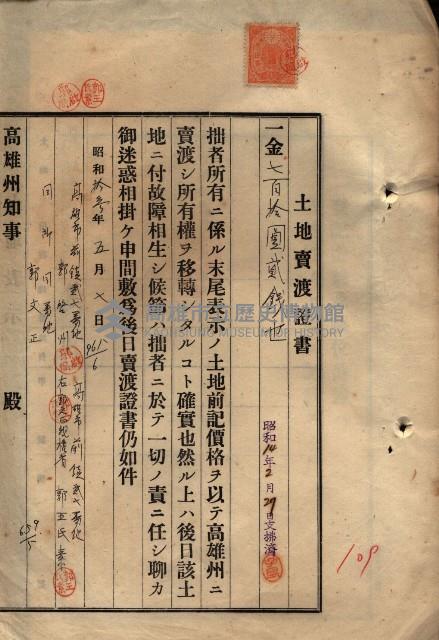 土地賣渡證書
一金七百拾圓貳錢也
拙者所有ニ係ル末尾表示ノ土地前記價格ヲ以テ高雄州ニ
賣渡シ所有權ヲ移轉シタルコト確實也然ル上ハ後日該土
地ニ付故障相生シ候節ハ拙者ニ於テ一切ノ責ニ任シ聊カ
御迷惑相掛ケ申間敷爲後日賣渡證書仍如件
昭和拾參年五月七日
高雄市前鎮貳七番地
郭啓州
高雄市前鎮貳七番地
右親權者
郭王氏
同所同番地
郭文正
高雄州知事
殿
昭和14年2月27日支拂濟
961/6
659/5
109
高雄市立歷史博物館
KAOHSIUNG MUSEUM OF HISTORY